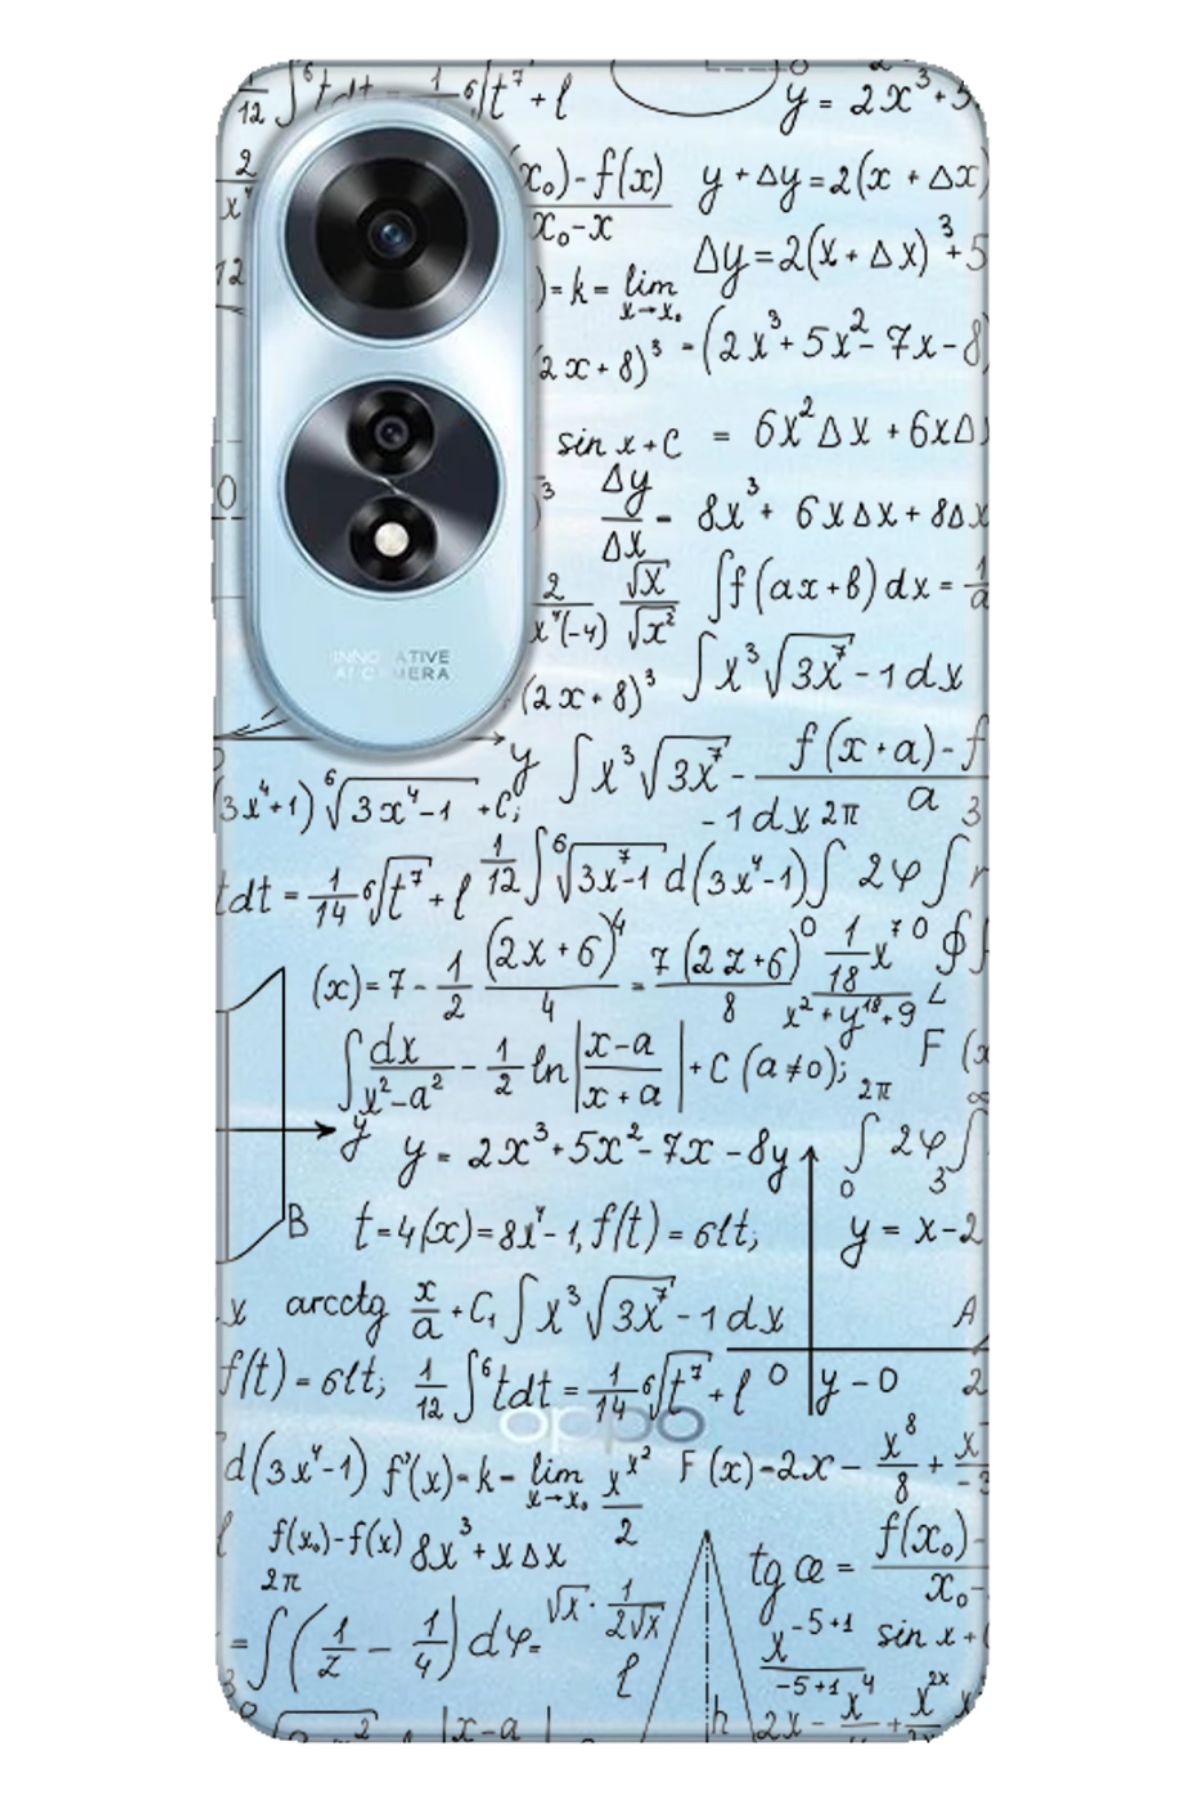 1/12 ∫ ⁶tdt = 1/14 ⁶√t⁷ + l
y = 2x³+5
2
x⁴
(x₀)-f(x)
x₀-x
y+Δy=2(x+Δx)
12
)=k= lim
x→x₀
Δy=2(x+Δx)³+5
(2x+8)³ -(2x³+5x²-7x-8)
sin x+C = 6x²Δx+6xΔ
0
)³ Δy/Δx - 8x³+ 6xΔx+8Δx
2/x⁴(-4) √x/√x² ∫f(ax+b)dx=1/a
INNOVATIVE
AI CAMERA
(2x+8)³ ∫x³√3x⁷-1dx
y ∫x³√3x⁷- f(x+a)-f
-1dx 2π a 3
(3x⁴+1)⁶√3x⁴-1 +C;
tdt=1/14 ⁶√t⁷+l 1/12 ∫⁶√3x⁷-1 d(3x⁴-1)∫2φ∫r
(x)=7-1/2 (2x+6)⁴/4 = 7(2z+6)⁰/8 1/18 x⁷⁰ ∮f
x²+y¹⁸+9 L
∫dx/x²-a² - 1/2 ln|x-a/x+a|+C (a≠0); F (x
2π ∞
y y=2x³+5x²-7x-8y ∫2φ∫
0 3
B t=4(x)=8x⁴-1, f(t)=6lt; y=x-2
x arcctg x/a+C₁ ∫x³√3x⁷-1dx A
f(t)=6lt; 1/12 ∫⁶tdt=1/14 ⁶√t⁷+l 0 y-0 2
oppo
d(3x⁴-1) f'(x)=k= lim x^x² F(x)=2x- x⁸/8 + x/-3
x→x₀ 2
l f(x₀)-f(x) 8x³+xΔx tg œ = f(x₀)-
2π x₀-
=∫(1/z - 1/4)dφ= √x · 1/2√x x⁻⁵⁺¹ sin x+C
l -5+1
h 2x- x⁴ + x²ˣ
2 x-a